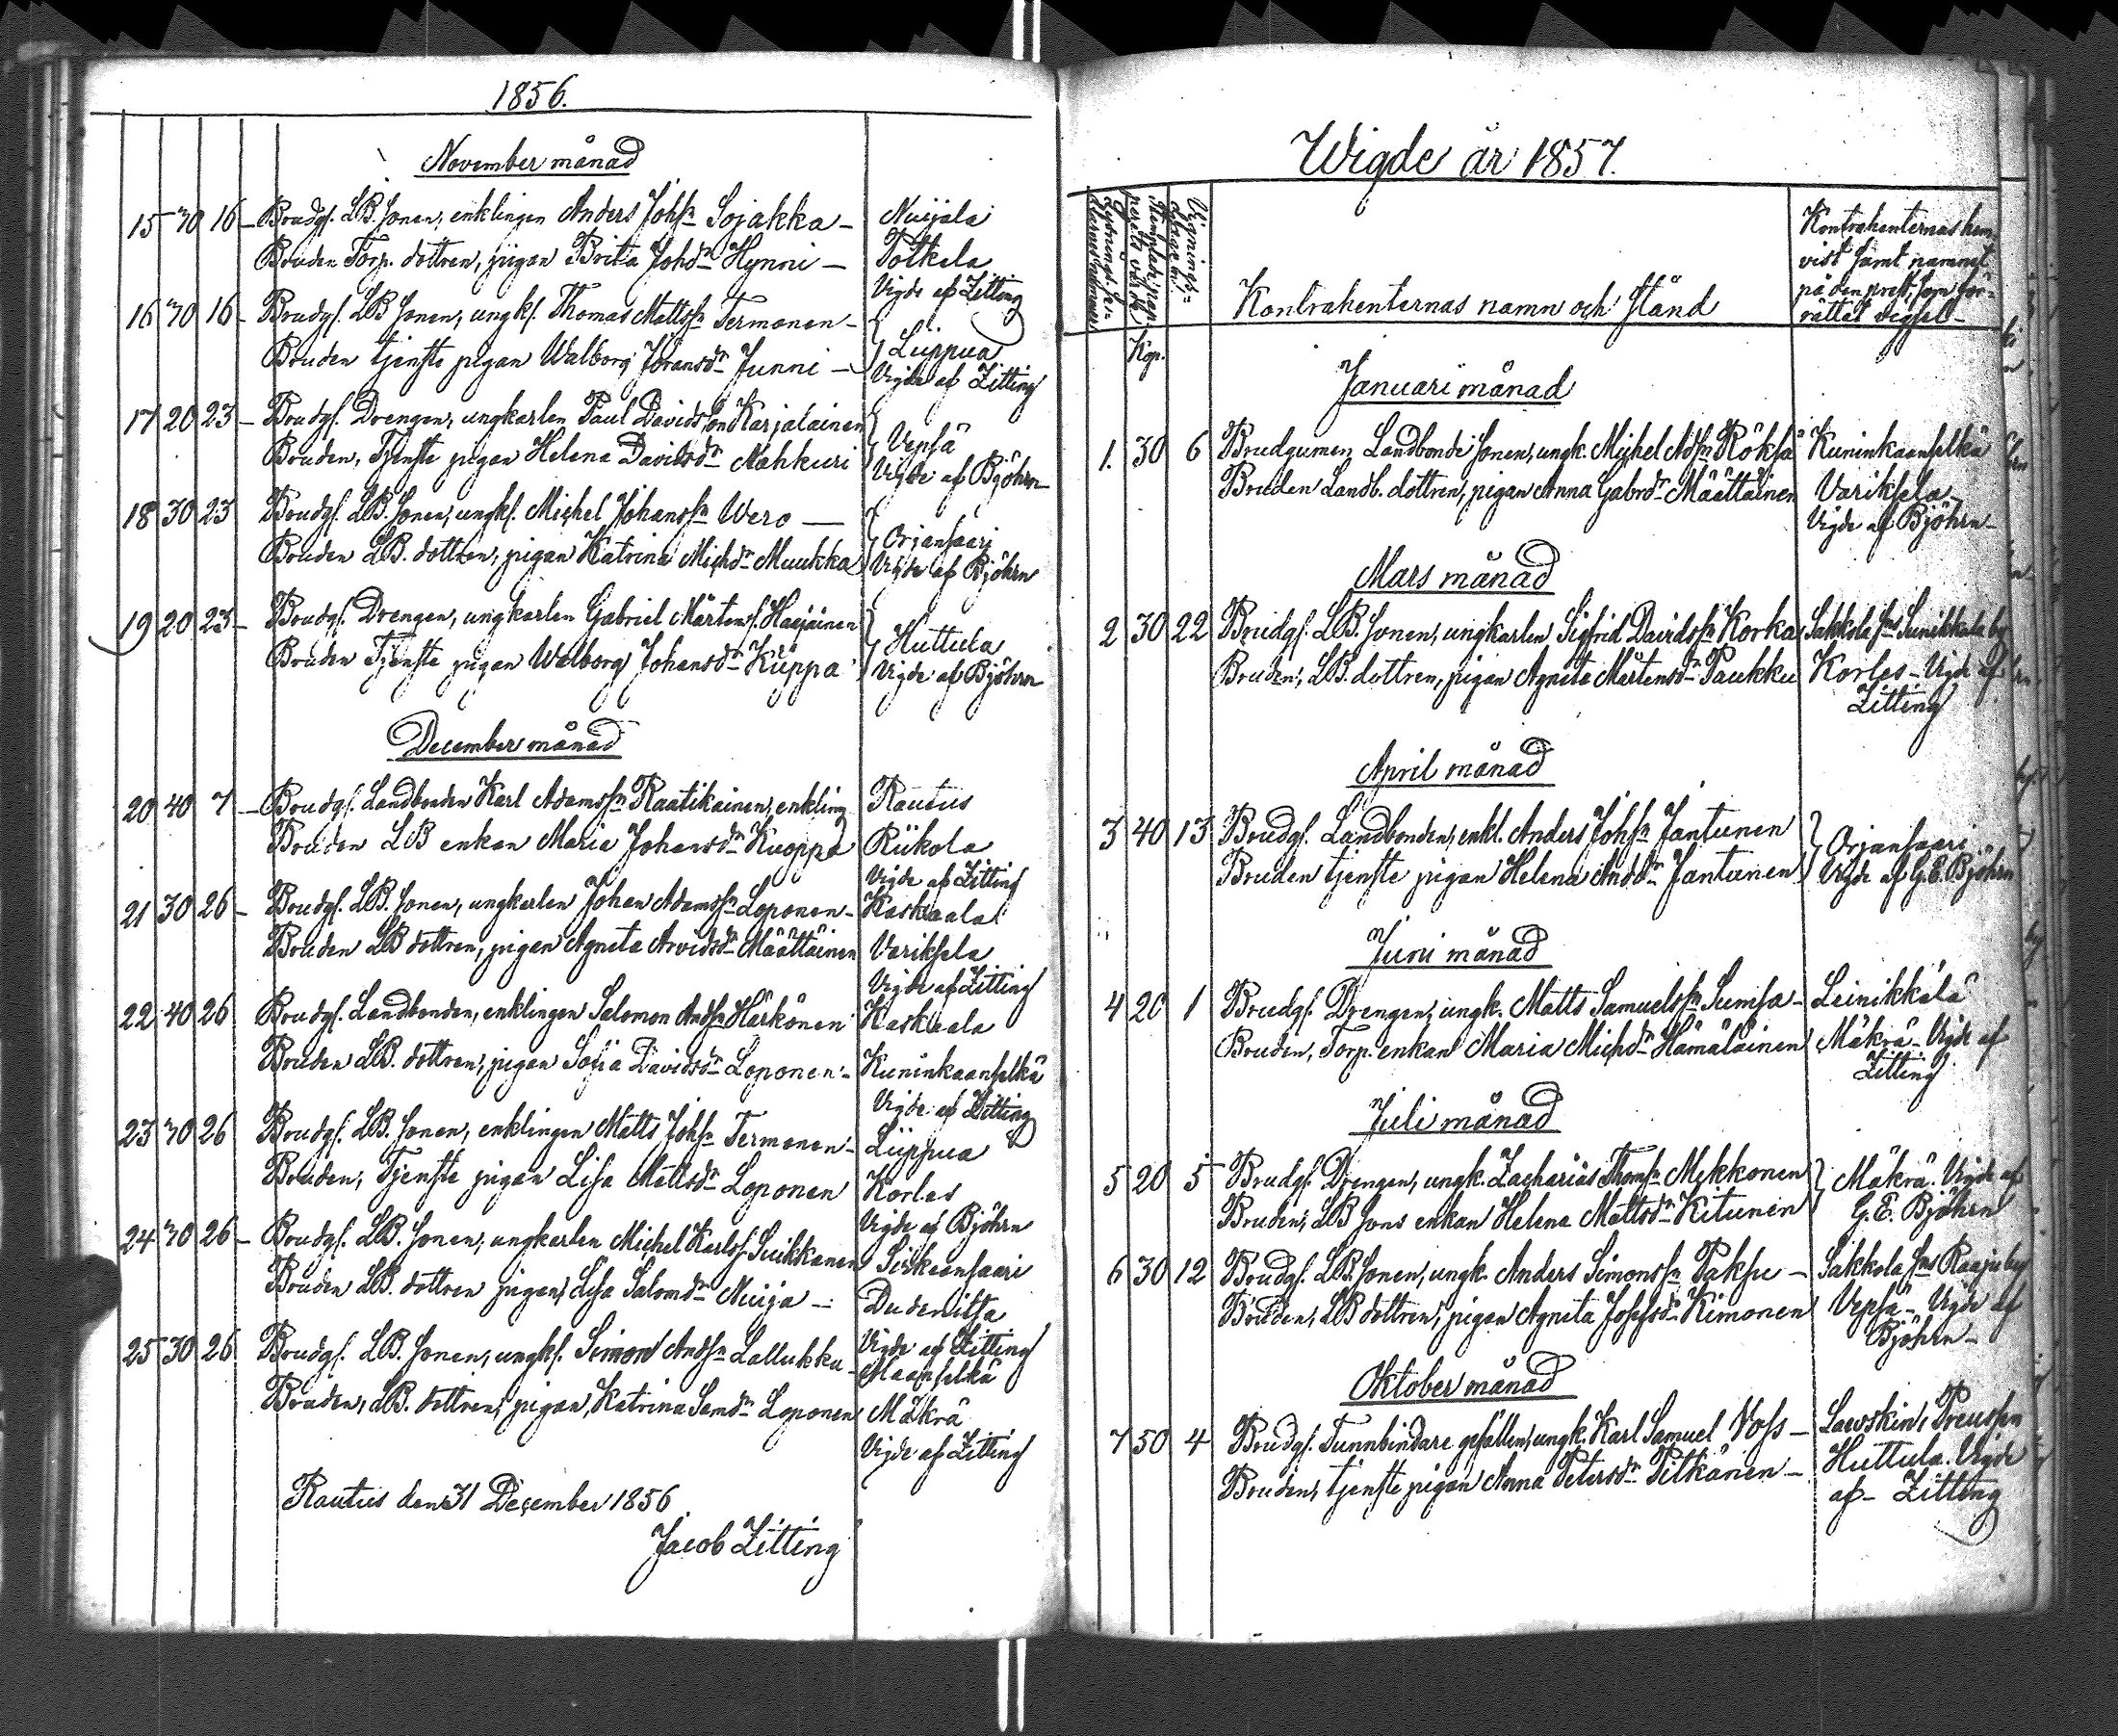 1856.
November månad
15 30 16 - Brudg. LB. sonen, enklingen Anders Johssn Sojakka - Nuijala
Bruden Torp. dottren, pigan Brita Johdr Hynni - Potkela
Vigde af Zitting
16 30 16 - Brudg. LB sonen, ungk. Thomas Mattssn Termonen -
Bruden tjenste pigan Walborg Göransdr Junni - Liippua
Vigde af Zitting
17 20 23 - Brudg. Drengen, ungkarlen Paul Davidsson Karjalainen
Bruden, Tjenste pigan Helena Davidsdr Nahkuri Vepsä
Vigde af Björhn
18 30 23 Brudg. LB. sonen, ungk. Michel Johanssn Wero -
Bruden LB. dottren, pigan Katrina Michdr Muukka Orjansaari
Vigde af Björhn
19 20 23 - Brudg. Drengen, ungkarlen Gabriel Mårtens. Haijäinen
Bruden Tjenste pigan Walborg Johansdr Kuppa Huttula
Vigde af Björhn
December månad
20 40 7 - Brudg. Landbonden Karl Adamssn Raatikainen, enkling Rautus
Bruden LB enkan Maria Johansdr Kuoppa Riikola
Vigde af Zitting
21 30 26 - Brudg. LB. sonen, ungkarlen Johan Adamssn Loponen - Kaskaala
Bruden LB dottren, pigan Agneta Arvidsdr Määttäinen Variksela
Vigde af Zitting
22 40 26 Brudg. Landbonden, enklingen Salomon Andssn Härkönen Kaskaala
Bruden LB. dottren, pigan Sofia Davidsdr Loponen - Kuninkaanselkä
Vigde af Zitting
23 30 26 Brudg. LB. sonen, enklingen Matts Johssn Termonen - Liippua
Bruden, Tjenste pigan Lisa Mattsdr Loponen Korles
Vigde af Björhn
24 30 26 - Brudg. LB. sonen, ungkarlen Michel Karlss. Suikkanen Sirkeansaari
Bruden LB. dottren pigan, Lisa Salomdr Nuija - Dudenitsa
Vigde af Zitting
25 30 26 Brudg. LB. sonen, ungk. Simon Andssn Lallukka - Maanselkä
Bruden, LB. dottren, pigan, Katrina Samdr Loponen Mäkrä
Vigde af Zitting
Rautus den 31 December 1856
Jacob Zitting
Wigde år 1857.
Vignings-
Kontrahenternas namn och stånd
Kontrahenternas hem-
vist samt namnet
på den prest, som för-
rättat vigsel -
Kop.
Januari månad
1. 30 6 Brudgumen Landbonde sonen, ungk. Michel Adssn Röksä Kuninkaanselkä
Bruden Landb. dottren, pigan Anna Gabrdr Määttäinen Variksela
Vigde af Björhn -
Mars månad
2 30 22 Brudg. LB. sonen, ungkarlen Sigfrid Davidssn Korka Sakkola sns Sunikkala by
Bruden, LB. dottren, pigan Agneta Mårtensdr Paukku Korles - Vigde af
Zitting
April månad
3 40 13 Brudg. Landbonden, enkl. Anders Johssn Jantunen Orjansaari
Bruden tjenste pigan Helena Andsdr Jantunen Vigde af G.E. Björhn
Juni månad
4 20 1 Brudg. Drengen, ungk. Matts Samuelssn Sumsa - Leinikkälä
Bruden, Torp. enkan Maria Michdr Hämäläinen Mäkrä - Vigde af
Zitting
Juli månad
5 20 5 Brudg. Drengen, ungk. Zacharias Thomssn Mekkonen Mäkrä. Vigde af
Bruden, LB sons enkan Helena Mattsdr Kitunen G. E. Björhn
6 30 12 Brudg. LB. sonen, ungk. Anders Simonssn Paksu - Sakkola sns Raaju by
Bruden, LB dottren, pigan Agneta Josefsdr Kimonen Vepsä - Vigde af
Björhn -
Oktober månad
7 50 4 Brudg. Tunnbindare gesällen, ungk. Karl Samuel Voss - Lawskin, Preussen
Bruden, tjenste pigan Anna Petersdr Pitkänen - Huttula. Vigde
af - Zitting